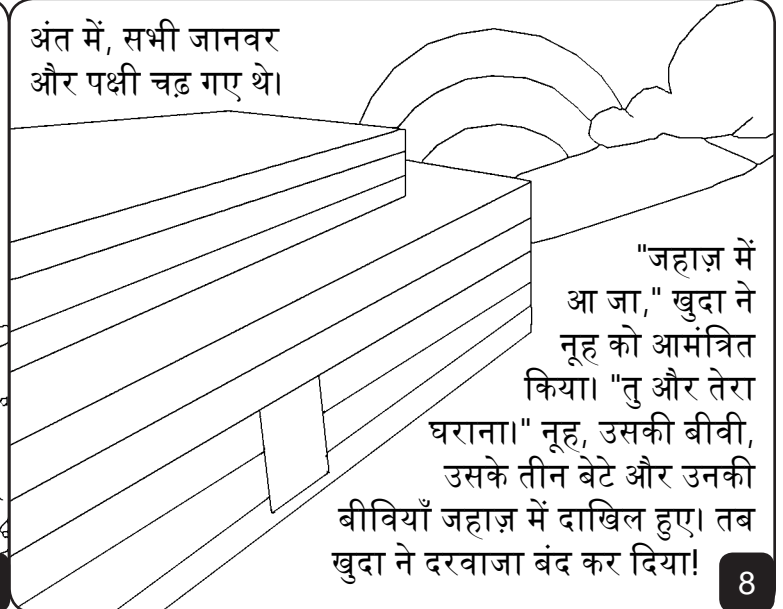 अंत में, सभी जानवर
और पक्षी चढ़ गए थे।
"जहाज़ में
आ जा," खुदा ने
नूह को आमंत्रित
किया। "तु और तेरा
घराना।" नूह, उसकी बीवी,
उसके तीन बेटे और उनकी
बीवियाँ जहाज़ में दाखिल हुए। तब
खुदा ने दरवाजा बंद कर दिया!
8